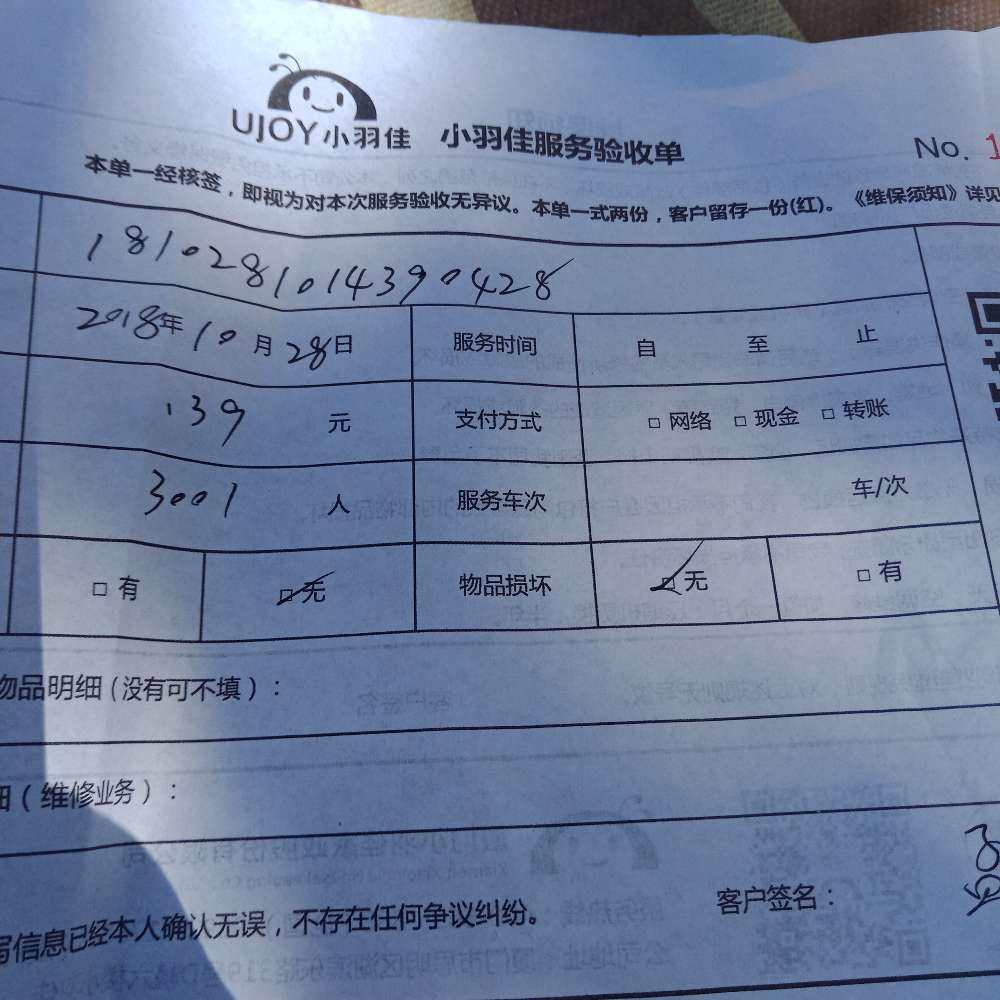 UJOY小羽佳 小羽佳服务验收单 No. 1
本单一经核签，即视为对本次服务验收无异议。本单一式两份，客户留存一份(红)。《维保须知》详见
1810281014390428
2018年10月28日 服务时间 自 至 止
139 元 支付方式 □ 网络 □ 现金 □ 转账
3001 人 服务车次 车/次
□ 有 □ 无 物品损坏 □ 无 □ 有
物品明细（没有可不填）：
细（维修业务）：
写信息已经本人确认无误，不存在任何争议纠纷。 客户签名：